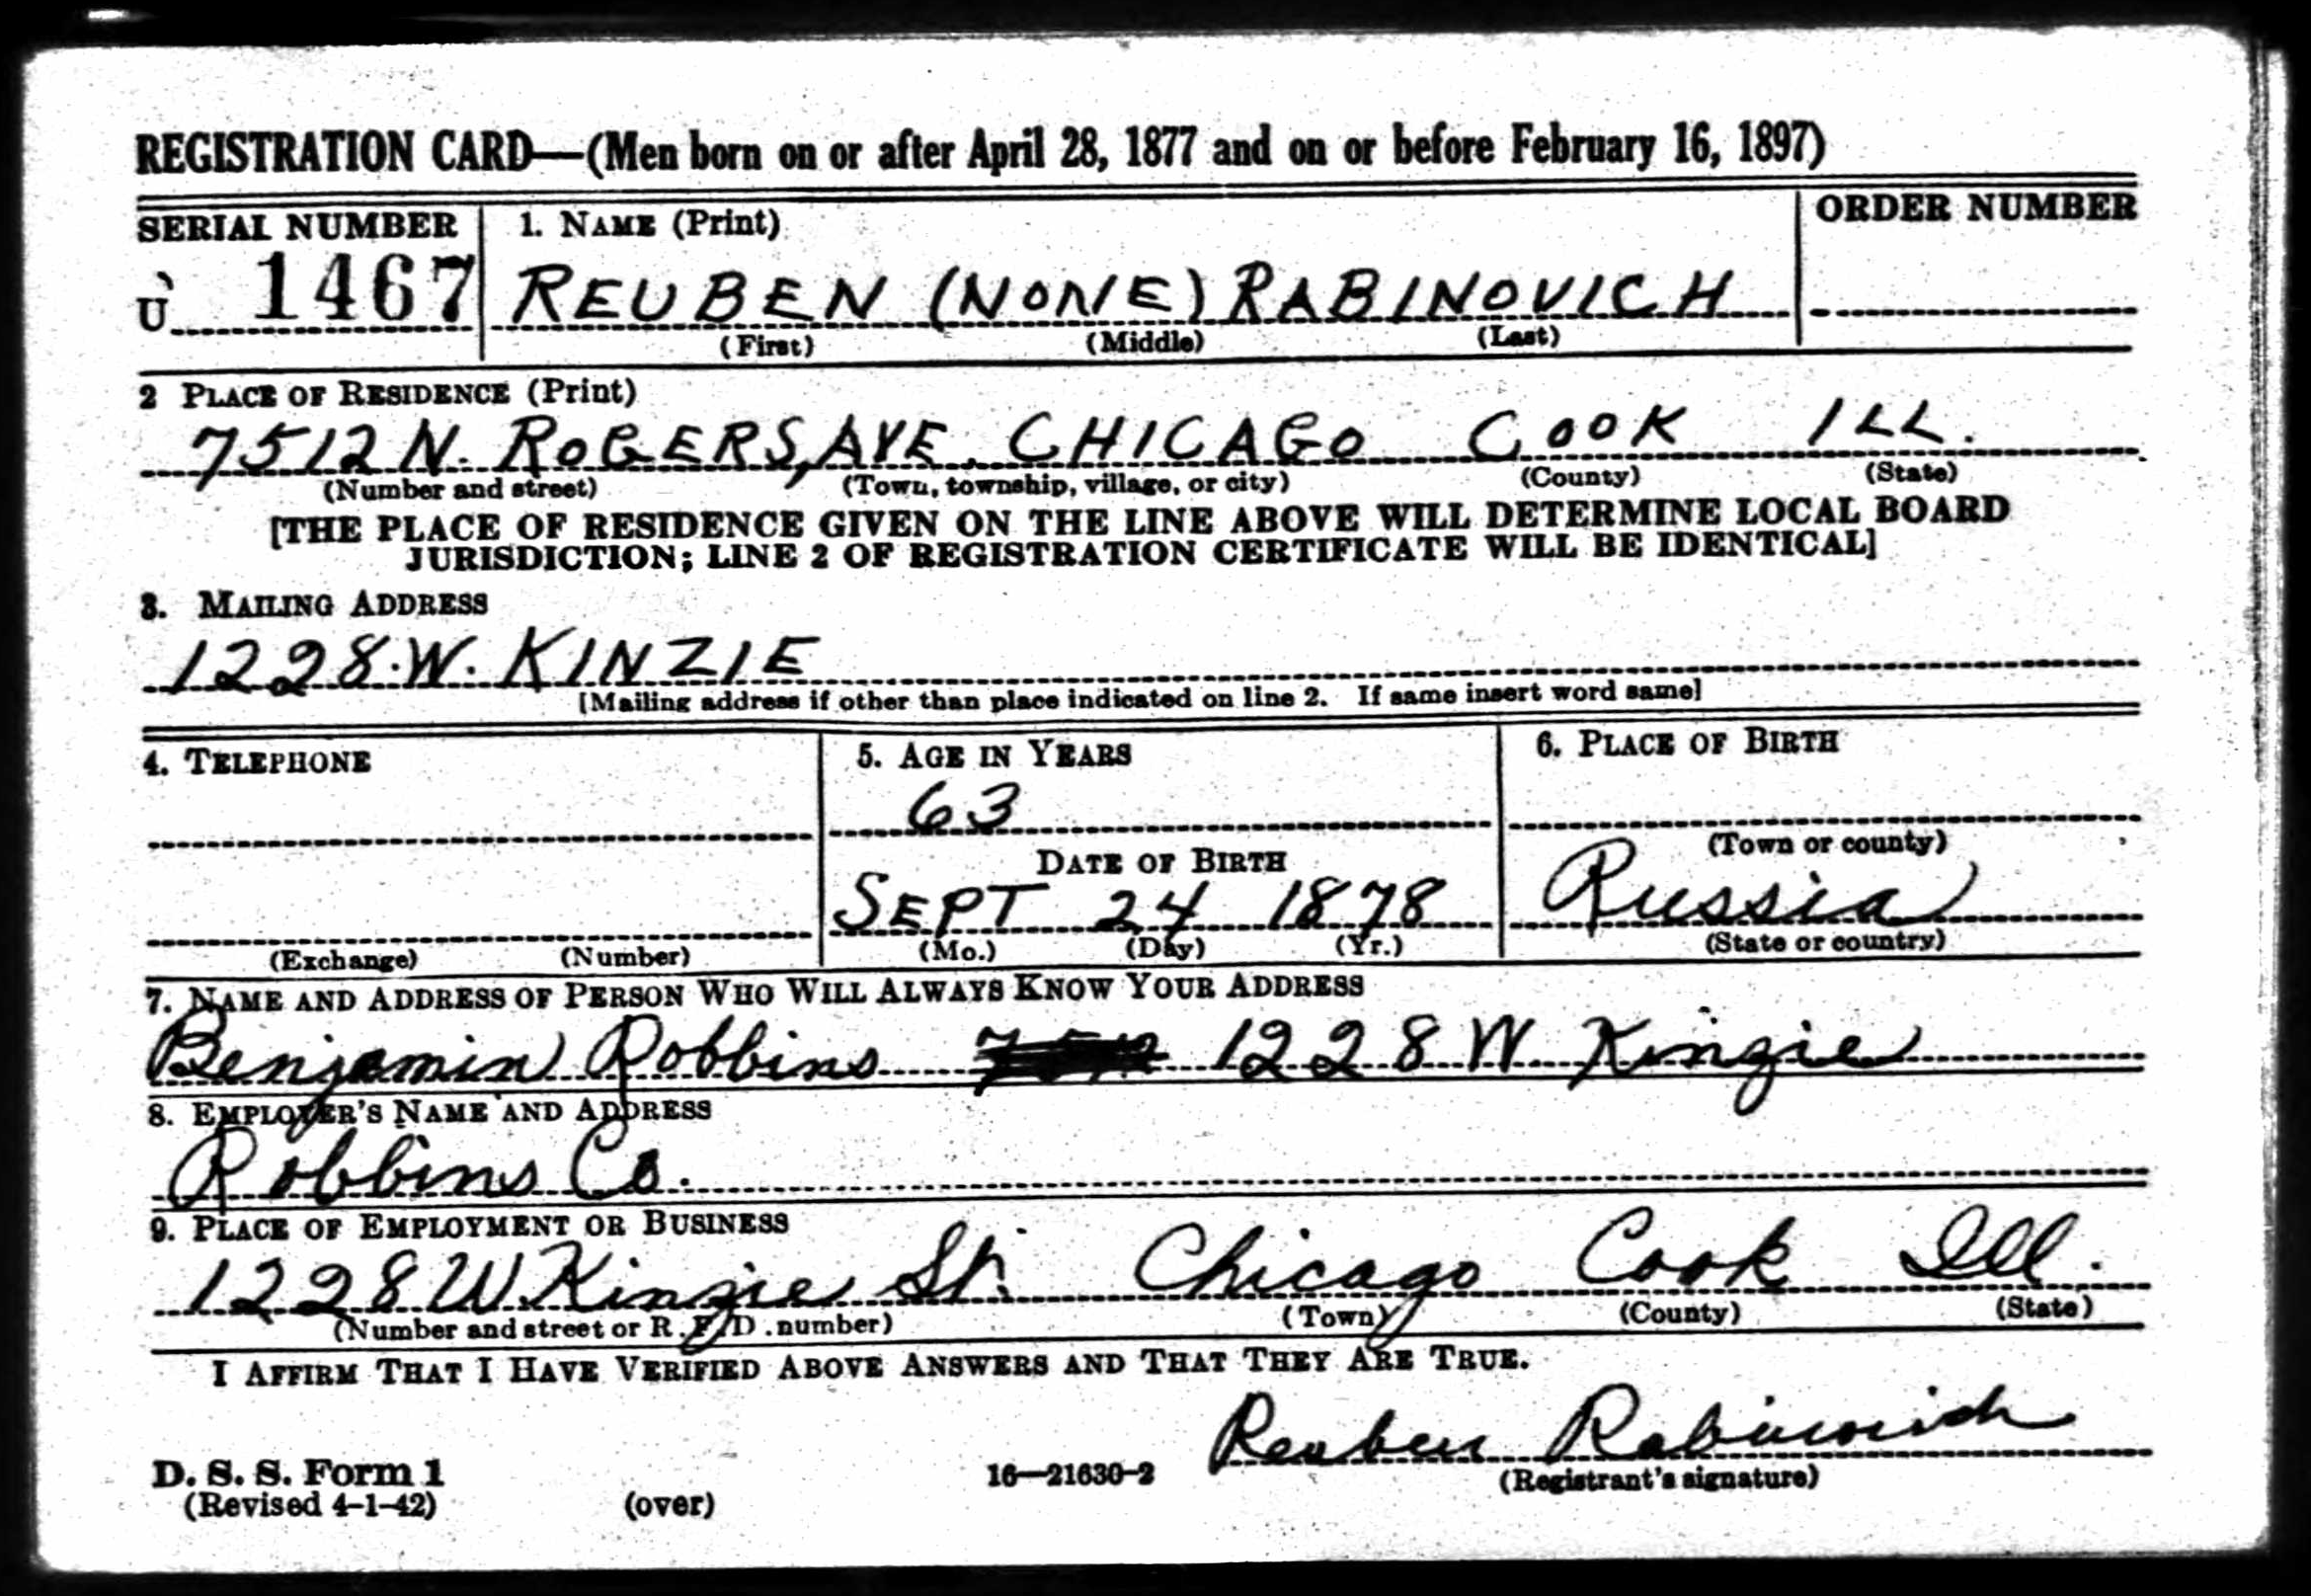 REGISTRATION CARD—(Men born on or after April 28, 1877 and on or before February 16, 1897)
SERIAL NUMBER 1. NAME (Print) ORDER NUMBER
U 1467 REUBEN (NONE) RABINOVICH
(First) (Middle) (Last)
2 PLACE OF RESIDENCE (Print)
7512 N. ROGERS, AVE. CHICAGO COOK ILL.
(Number and street) (Town, township, village, or city) (County) (State)
[THE PLACE OF RESIDENCE GIVEN ON THE LINE ABOVE WILL DETERMINE LOCAL BOARD
JURISDICTION; LINE 2 OF REGISTRATION CERTIFICATE WILL BE IDENTICAL]
3. MAILING ADDRESS
1228. W. KINZIE
[Mailing address if other than place indicated on line 2. If same insert word same]
4. TELEPHONE 5. AGE IN YEARS 6. PLACE OF BIRTH
63
(Town or county)
DATE OF BIRTH
SEPT 24 1878 Russia
(Exchange) (Number) (Mo.) (Day) (Yr.) (State or country)
7. NAME AND ADDRESS OF PERSON WHO WILL ALWAYS KNOW YOUR ADDRESS
Benjamin Robbins 1228 W Kinzie
8. EMPLOYER'S NAME AND ADDRESS
Robbins Co.
9. PLACE OF EMPLOYMENT OR BUSINESS
1228 W Kinzie St. Chicago Cook Ill.
(Number and street or R. F. D. number) (Town) (County) (State)
I AFFIRM THAT I HAVE VERIFIED ABOVE ANSWERS AND THAT THEY ARE TRUE.
Reuben Rabinovich
D. S. S. Form 1 16—21630-2 (Registrant's signature)
(Revised 4-1-42) (over)